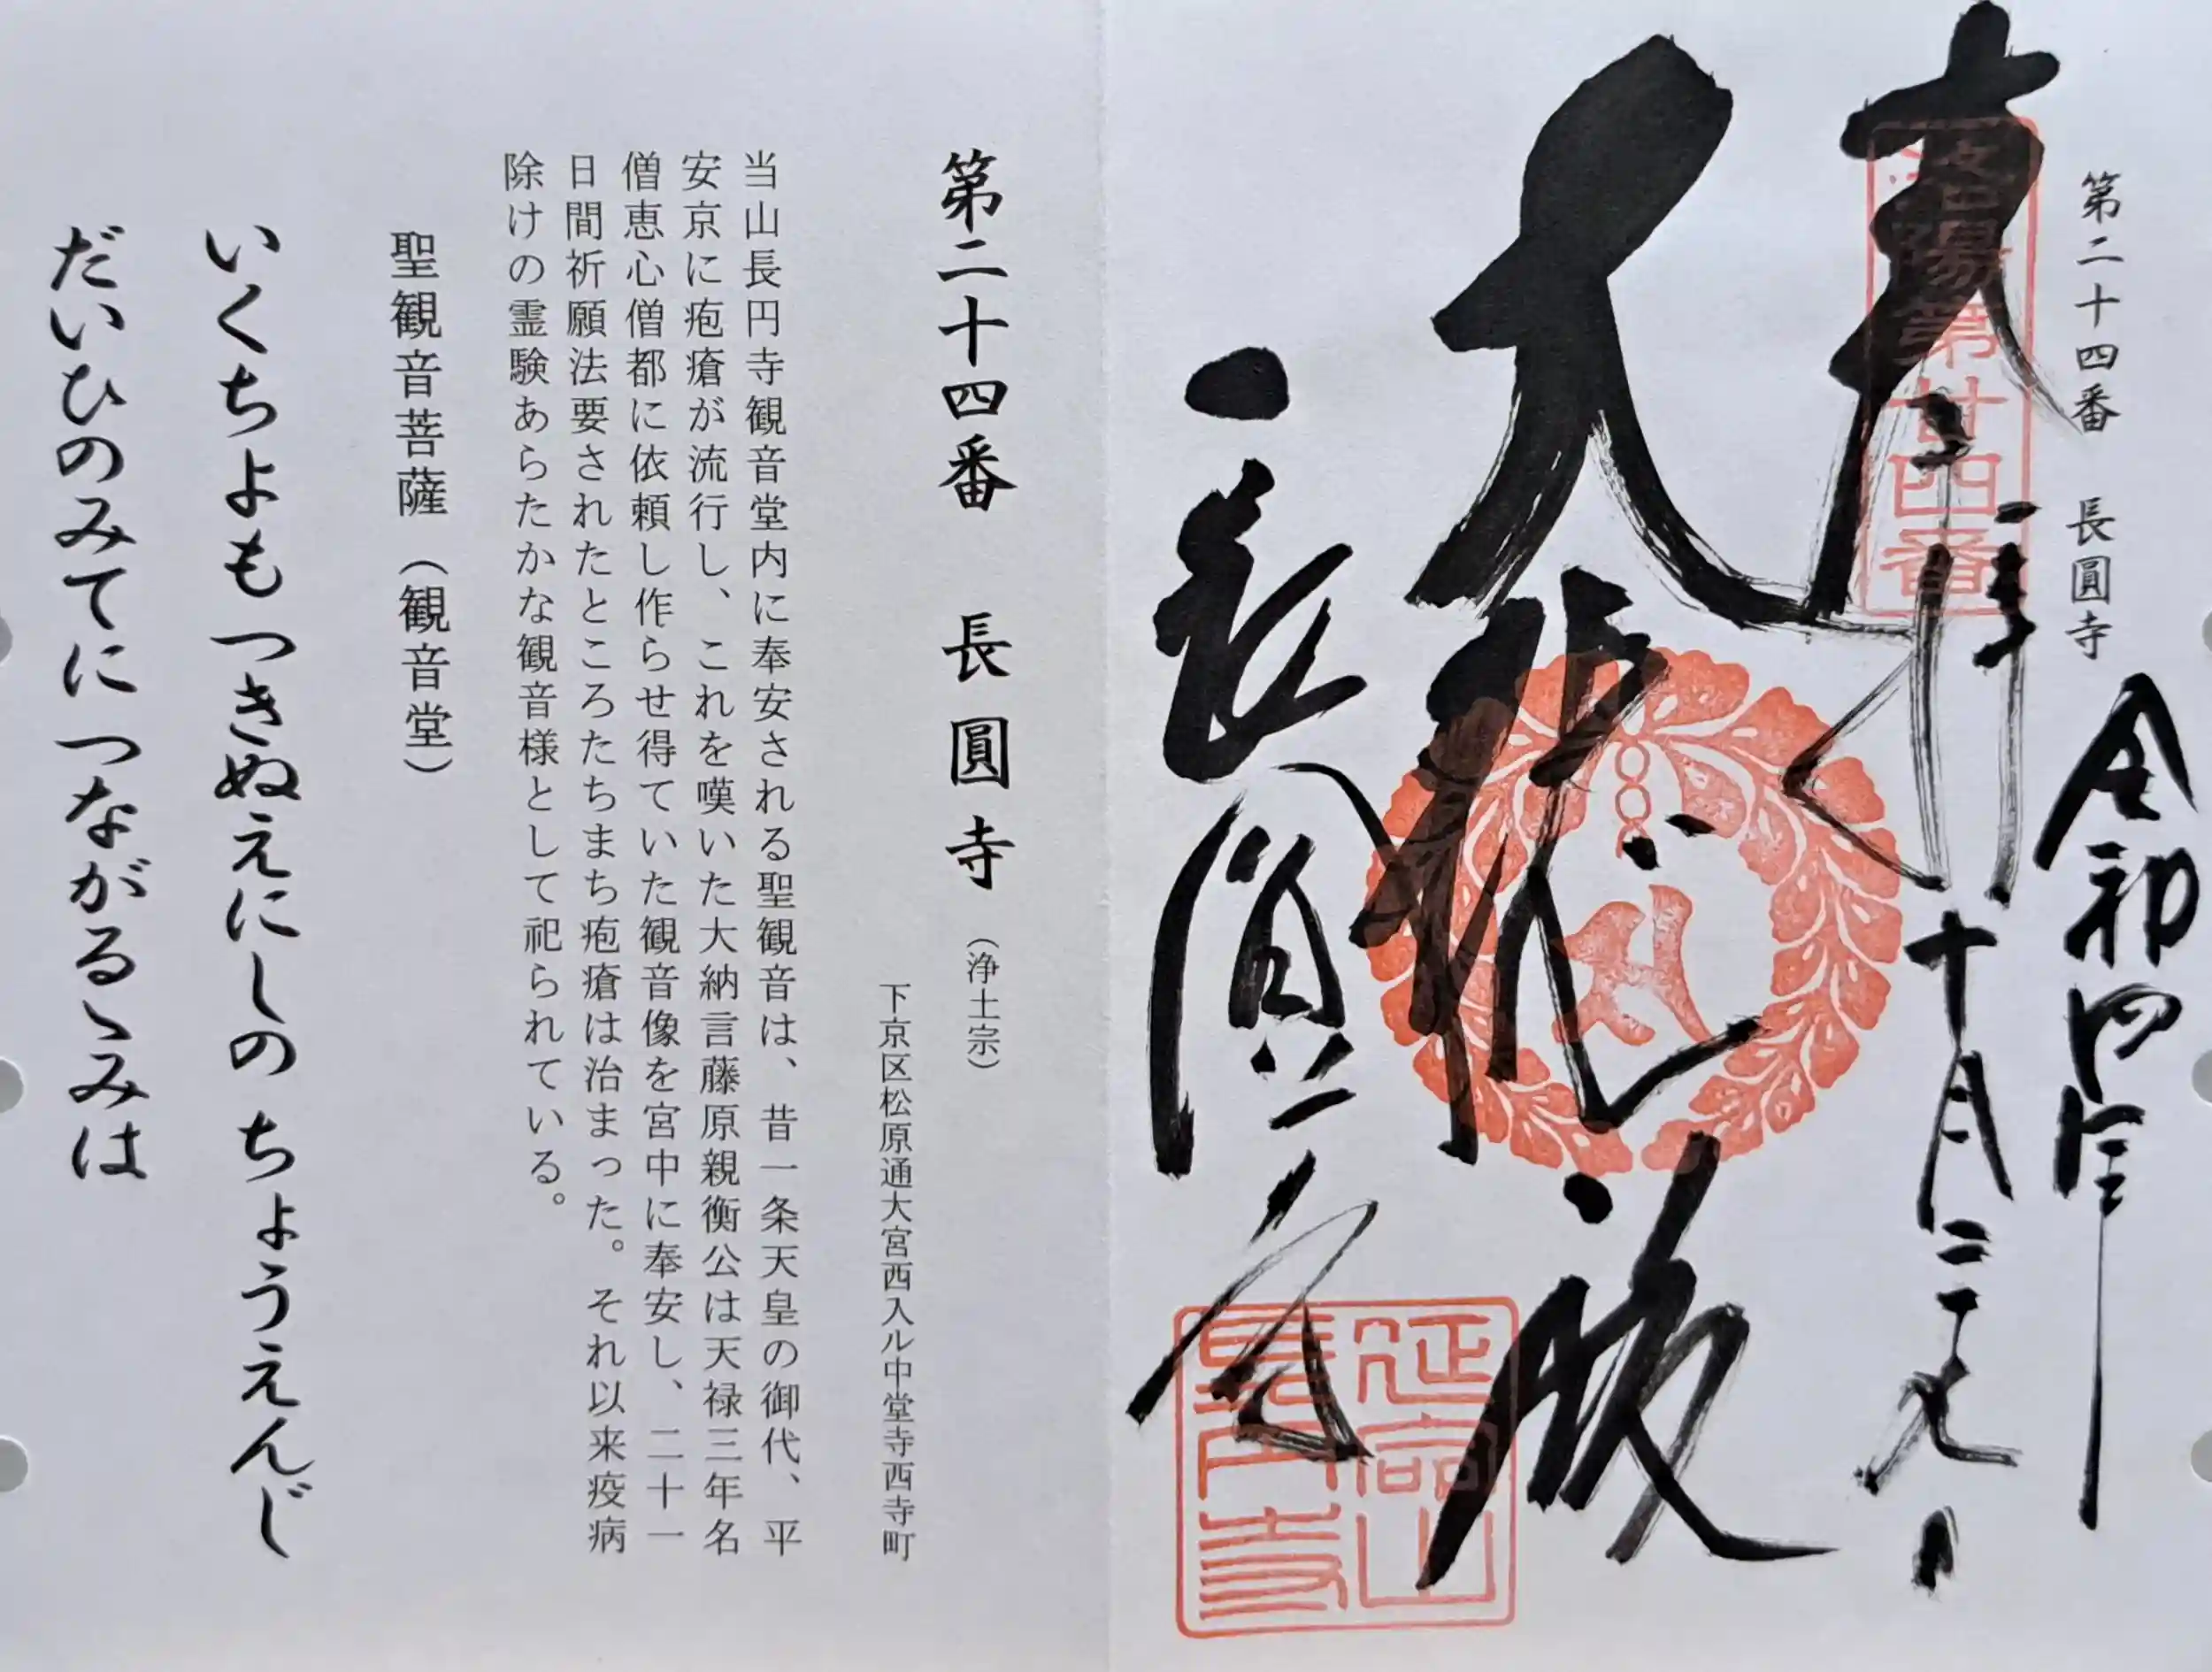 第二十四番　長圓寺
令和四年
十月二十九日
奉拝
洛陽第廿四番
長圓寺
長円寺
第二十四番　長圓寺（浄土宗）
下京区松原通大宮西入ル中堂寺西寺町
当山長円寺観音堂内に奉安される聖観音は、昔一条天皇の御代、平
安京に疱瘡が流行し、これを嘆いた大納言藤原親衡公は天禄三年名
僧恵心僧都に依頼し作らせ得ていた観音像を宮中に奉安し、二十一
日間祈願法要されたところたちまち疱瘡は治まった。それ以来疫病
除けの霊験あらたかな観音様として祀られている。
聖観音菩薩（観音堂）
いくちよも つきぬえにしの ちょうえんじ
だいひのみてに つながるゝみは